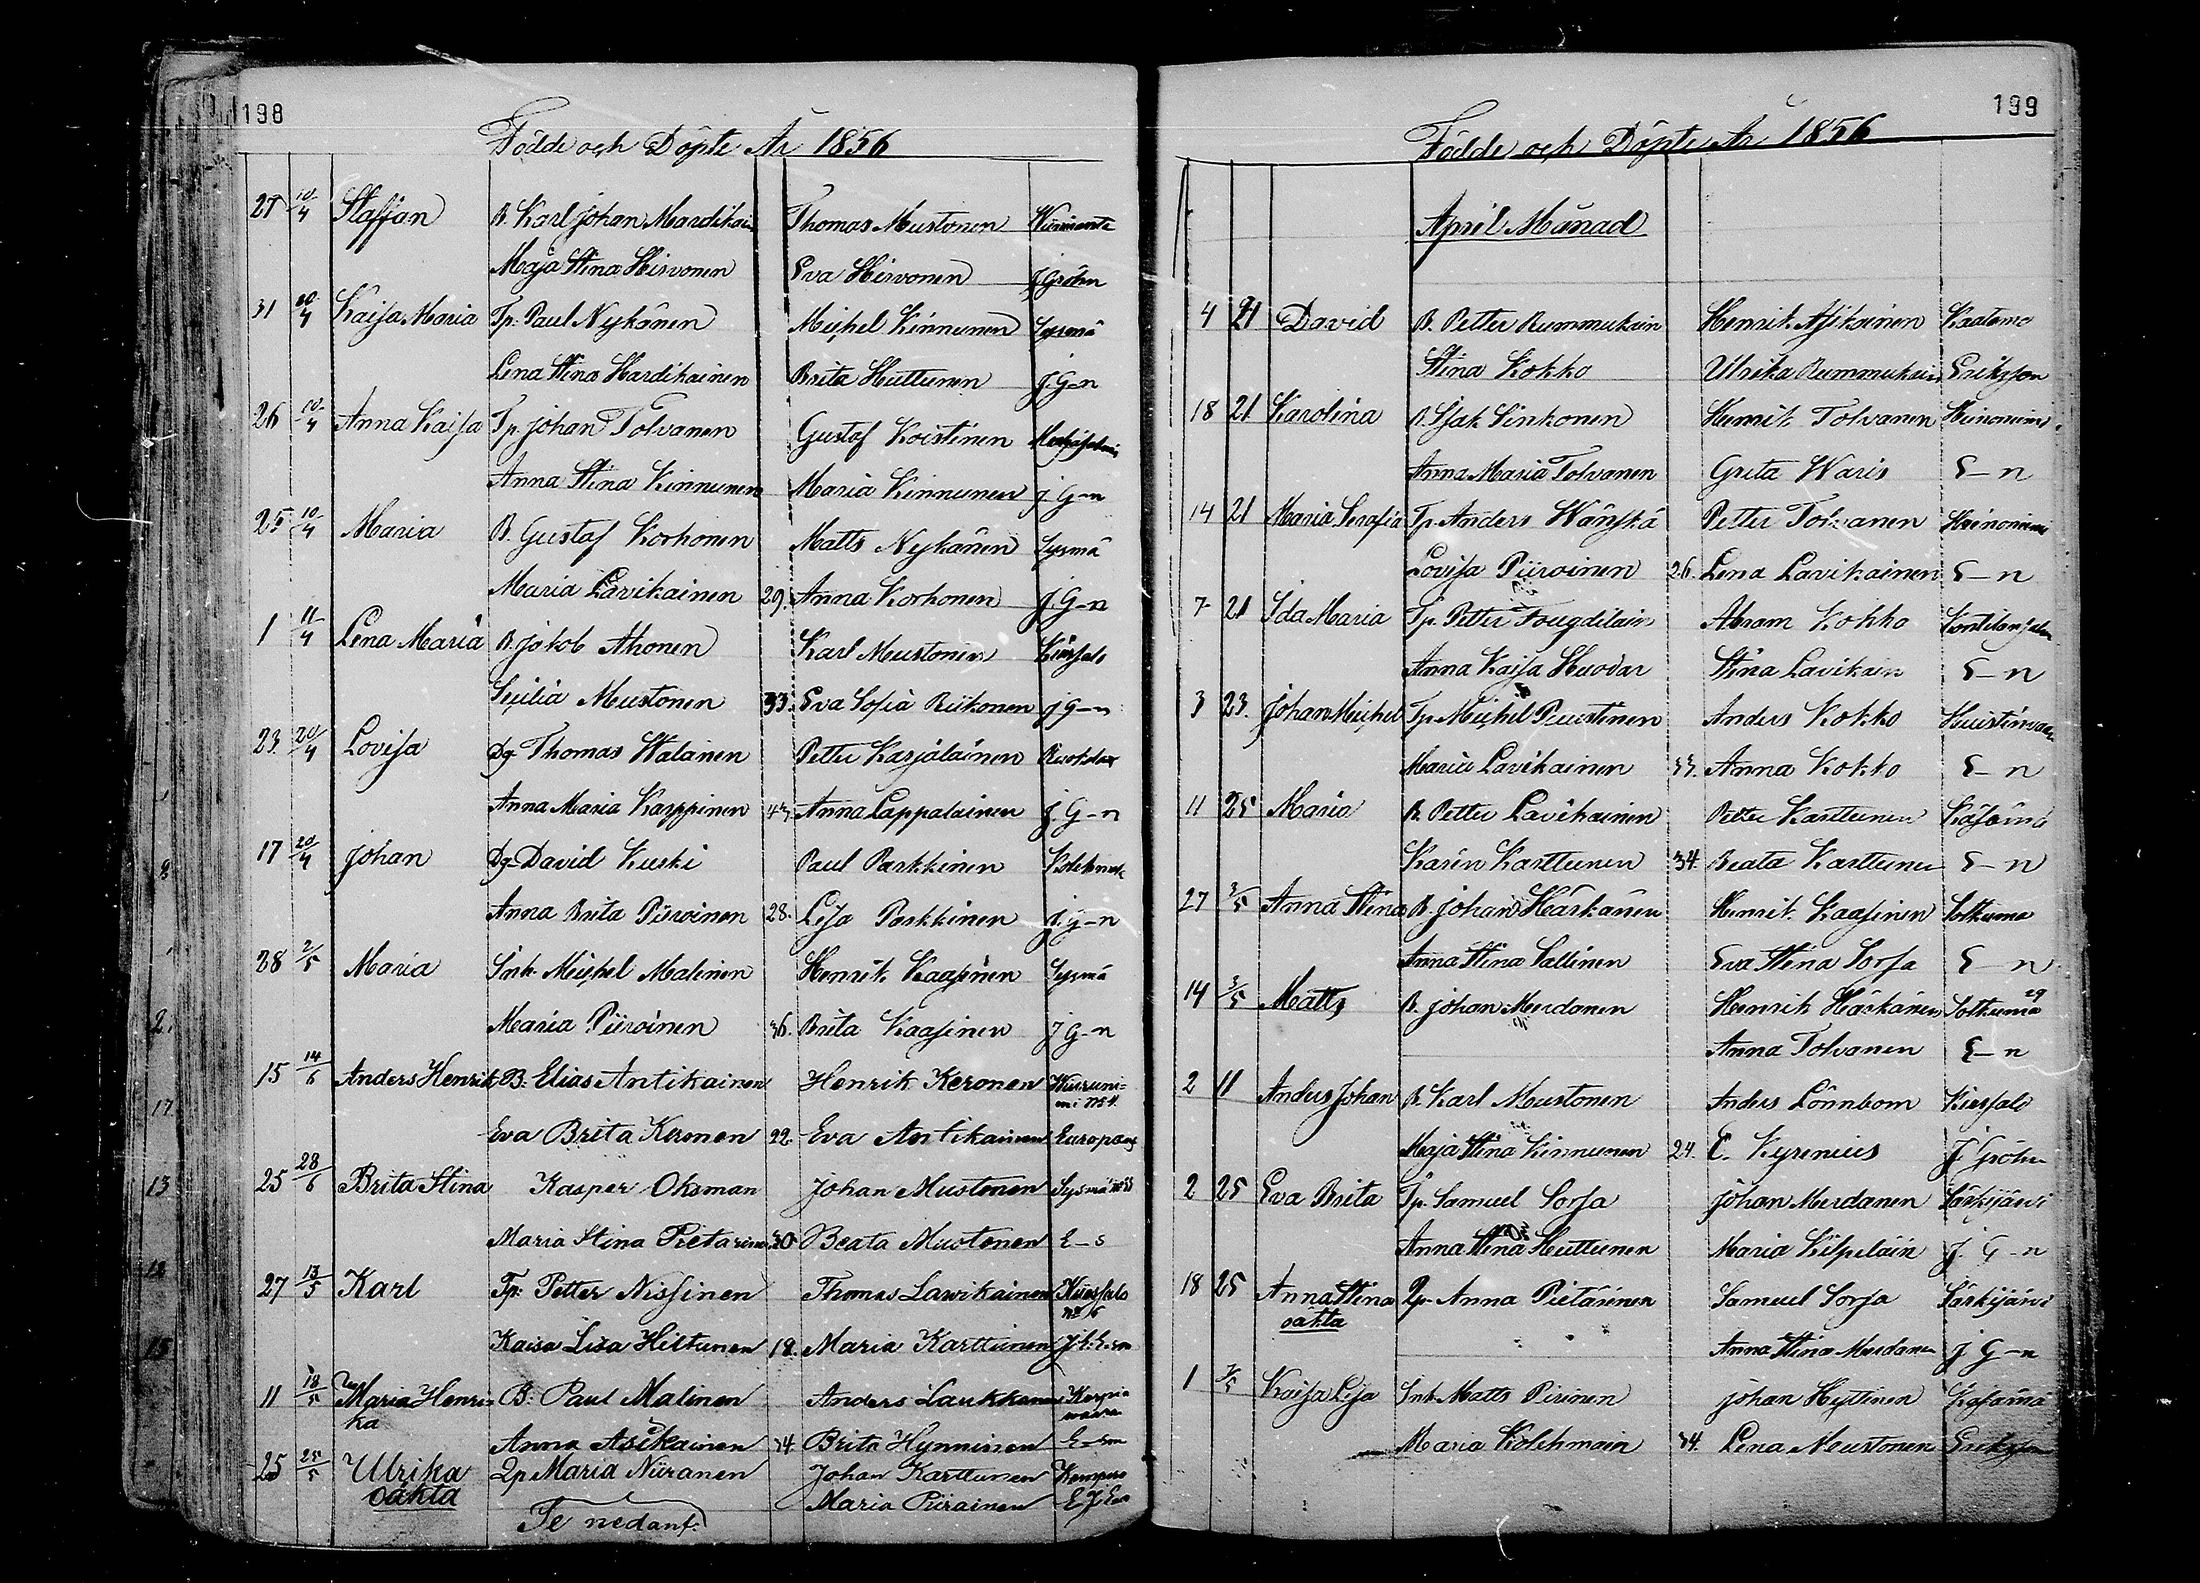 198
Födde och Döpte År 1856
27 10/4 Staffan B. Karl Johan Mardikai Thomas Mustonen
Maja Stina Hirvonen Eva Hirvonen J Gröhn
31 20/4 Kaisa Maria Tp. Paul Nykänen Michel Kinnunen Sysmä
Lena Stina Hardikainen Brita Huttunen J. G-n
26 10/4 Anna Kaisa Tp. Johan Tolvanen Gustaf Koistinen
Anna Stina Kinnunen Maria Kinnunen J. G-n
25 10/4 Maria B. Gustaf Korhonen Matts Nykänen Sysmä
Maria Lavikainen 29. Anna Korhonen J. G-n
1 11/4 Lena Maria B. Jakob Ahonen Karl Mustonen
Sicilia Mustonen 33. Eva Sofia Riikonen J G-n
23. 20/4 Lovisa Dg. Thomas Walanen Petter Karjalainen
Anna Maria Karppinen 43 Anna Lappalainen J. G-n
17 20/4 Johan Dg. David Kuski Paul Parkkinen
Anna Brita Piiroinen 28. Lisa Parkkinen J. G-n
28 2/5 Maria Inh. Michel Malinen Henrik Kaasinen Sysmä
Maria Piiroinen 36. Brita Kaasinen J G-n
15 14/6 Anders Henrik B. Elias Antikainen Henrik Keronen Wiiruni-
mi No 4.
Eva Brita Keronen 22. Eva Antikainen Europaeus
25 28/6 Brita Stina Kasper Oksman Johan Mustonen Sysmä
Maria Stina Pietarinen 30 Beata Mustonen E-s
27 13/5 Karl Tp. Petter Nissinen Thomas Lavikainen Kiessalo
No 6
Kaisa Lisa Hiltunen 18. Maria Karttunen
11 18/5 Maria Henri- B. Paul Malinen Anders Laukkanen Korpi-
ka vaara
Anna Asikainen 34. Brita Hynninen
25 25/5 Ulrika Qp Maria Niiranen Johan Karttunen
oäkta Maria Piirainen
Se nedanf.
199
Födde och Döpte År 1856
April Månad
4 21 David B. Petter Rummukain Henrik Asikainen Kaatamo
Stina Kokko Ulrika Rummukain Eriksson
18 21 Karolina B. Isak Sinkonen Henrik Tolvanen Heinoniemi
Anna Maria Tolvanen Greta Waris E-n
14 21 Maria Serafia Tp. Anders Wänskä Petter Tolvanen Heinoniemi
Lovisa Piiroinen 26. Lena Lavikainen E-n
7 21 Ida Maria Tp. Petter Fougdilain Abram Kokko
Anna Kaisa Huovar Stina Lavikain E-n
3 23. Johan Michel Tp. Michel Puustinen Anders Kokko
Maria Lavikainen 33. Anna Kokko E-n
11 25 Maria B. Petter Lavikainen Petter Karttunen Käsämä
Karin Karttunen 34. Beata Karttunen E-n
27 3/5 Anna Stina B. Johan Härkänen Henrik Kaasinen Sotkuma
Anna Stina Sallinen Eva Stina Sorsa E-n
14 3/5 Matts B. Johan Mardanen Henrik Härkänen Sotkuma
29
Anna Tolvanen E-n
2 11 Anders Johan B. Karl Mustonen Anders Lönnbom Kiessalo
Maja Stina Kinnunen 24. C. Kyrenius J. Gröhn
2 25 Eva Brita Tp. Samuel Sorsa Johan Murdanen Särkijärvi
Anna Stina Huttunen Maria Kilpeläin J. G-n
18 25 Anna Stina Qp. Anna Pietärinen Samuel Sorsa Särkijärvi
oäkta Anna Stina Murdanen J G-n
1 Kaisa Lisa Inh. Matts Pirinen Johan Hyttinen Käsämä
Maria Kolehmain 34. Lena Mustonen Eriksson